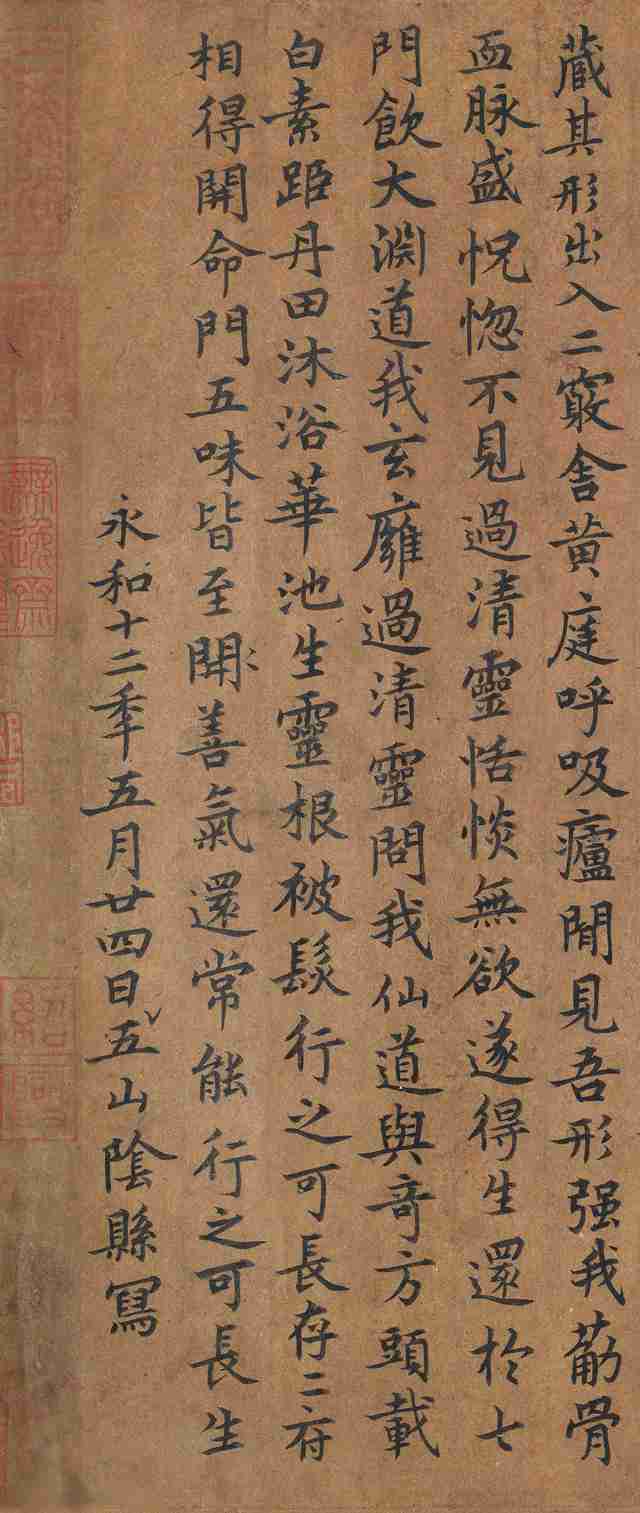 藏其形出入二竅舍黄庭呼吸廬閒見吾形强我筋骨
血脉盛怳惚不見過清靈恬惔無欲遂得生還於七
門飲大淵道我玄廱過清靈問我仙道與奇方頭載
白素距丹田沐浴華池生靈根被髮行之可長存二府
相得開命門五味皆至開善氣還常能行之可長生
永和十二年五月廿四日五山陰縣寫